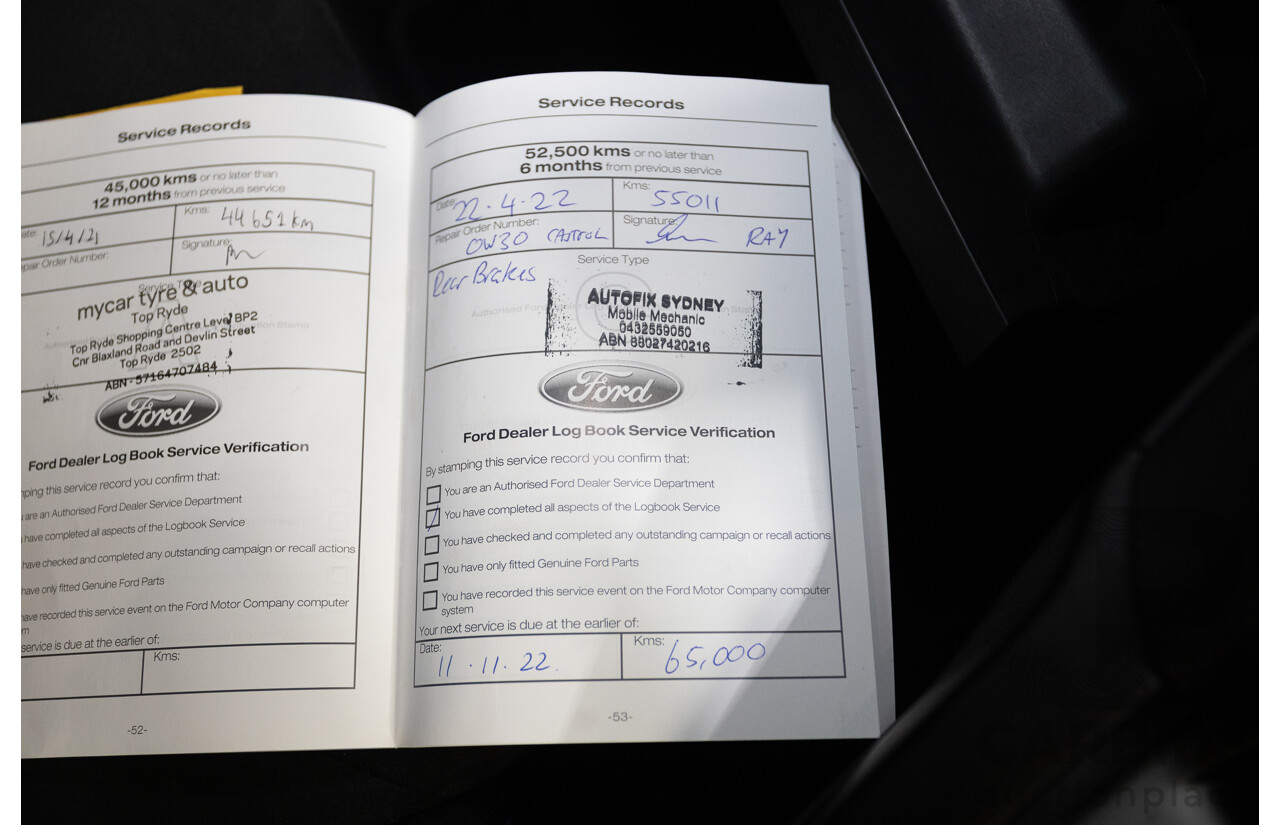 Service Records
45,000 kms or no later than
12 months from previous service
ate: 15/4/21
Kms: 44651km
pair Order Number:
Signature:
mycar tyre & auto
Top Ryde
Top Ryde Shopping Centre Level BP2
Cnr Blaxland Road and Devlin Street
Top Ryde 2502
ABN - 57164707484
Ford
Ford Dealer Log Book Service Verification
ping this service record you confirm that:
are an Authorised Ford Dealer Service Department
have completed all aspects of the Logbook Service
have checked and completed any outstanding campaign or recall actions
have only fitted Genuine Ford Parts
have recorded this service event on the Ford Motor Company computer
m
service is due at the earlier of:
Kms:
-52-
Service Records
52,500 kms or no later than
6 months from previous service
Date: 22.4.22
Kms: 55011
Repair Order Number: 0W30 CASTROL
Signature: RAY
Service Type
Rear Brakes
AUTOFIX SYDNEY
Mobile Mechanic
0432559050
ABN 88027420216
Ford
Ford Dealer Log Book Service Verification
By stamping this service record you confirm that:
You are an Authorised Ford Dealer Service Department
You have completed all aspects of the Logbook Service
You have checked and completed any outstanding campaign or recall actions
You have only fitted Genuine Ford Parts
You have recorded this service event on the Ford Motor Company computer
system
Your next service is due at the earlier of:
Date: 11.11.22.
Kms: 65,000
-53-